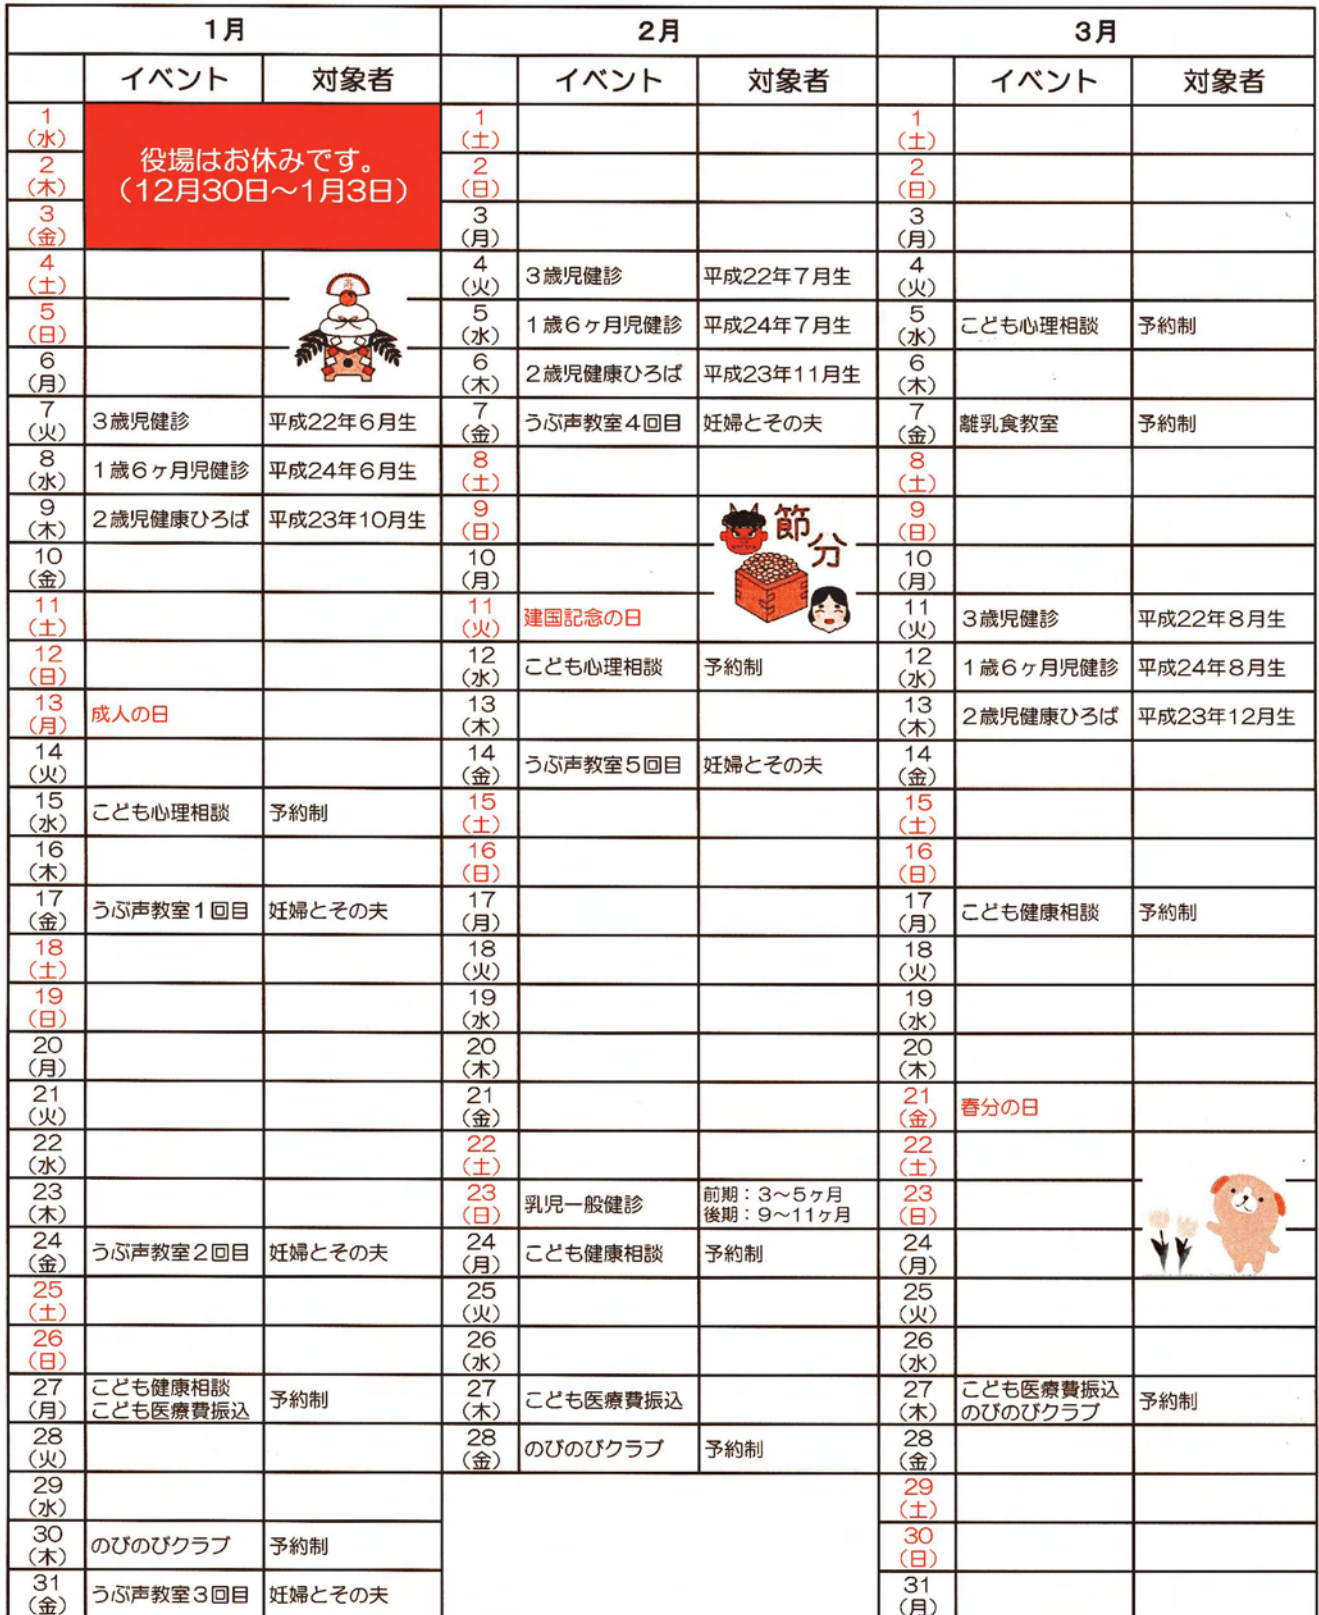 1月 2月 3月
イベント 対象者 イベント 対象者 イベント 対象者
役場はお休みです。
(12月30日～1月3日)
1
(水)
2
(木)
3
(金)
4
(土)
5
(日)
6
(月)
7
(火) 3歳児健診 平成22年6月生
8
(水) 1歳6ヶ月児健診 平成24年6月生
9
(木) 2歳児健康ひろば 平成23年10月生
10
(金)
11
(土)
12
(日)
13
(月) 成人の日
14
(火)
15
(水) こども心理相談 予約制
16
(木)
17
(金) うぶ声教室1回目 妊婦とその夫
18
(土)
19
(日)
20
(月)
21
(火)
22
(水)
23
(木)
24
(金) うぶ声教室2回目 妊婦とその夫
25
(土)
26
(日)
27
(月) こども健康相談
こども医療費振込 予約制
28
(火)
29
(水)
30
(木) のびのびクラブ 予約制
31
(金) うぶ声教室3回目 妊婦とその夫
1
(土)
2
(日)
3
(月)
4
(火) 3歳児健診 平成22年7月生
5
(水) 1歳6ヶ月児健診 平成24年7月生
6
(木) 2歳児健康ひろば 平成23年11月生
7
(金) うぶ声教室4回目 妊婦とその夫
8
(土)
9
(日)
節分
10
(月)
11
(火) 建国記念の日
12
(水) こども心理相談 予約制
13
(木)
14
(金) うぶ声教室5回目 妊婦とその夫
15
(土)
16
(日)
17
(月)
18
(火)
19
(水)
20
(木)
21
(金)
22
(土)
23
(日) 乳児一般健診 前期：3～5ヶ月
後期：9～11ヶ月
24
(月) こども健康相談 予約制
25
(火)
26
(水)
27
(木) こども医療費振込
28
(金) のびのびクラブ 予約制
1
(土)
2
(日)
3
(月)
4
(火)
5
(水) こども心理相談 予約制
6
(木)
7
(金) 離乳食教室 予約制
8
(土)
9
(日)
10
(月)
11
(火) 3歳児健診 平成22年8月生
12
(水) 1歳6ヶ月児健診 平成24年8月生
13
(木) 2歳児健康ひろば 平成23年12月生
14
(金)
15
(土)
16
(日)
17
(月) こども健康相談 予約制
18
(火)
19
(水)
20
(木)
21
(金) 春分の日
22
(土)
23
(日)
24
(月)
25
(火)
26
(水)
27
(木) こども医療費振込
のびのびクラブ 予約制
28
(金)
29
(土)
30
(日)
31
(月)